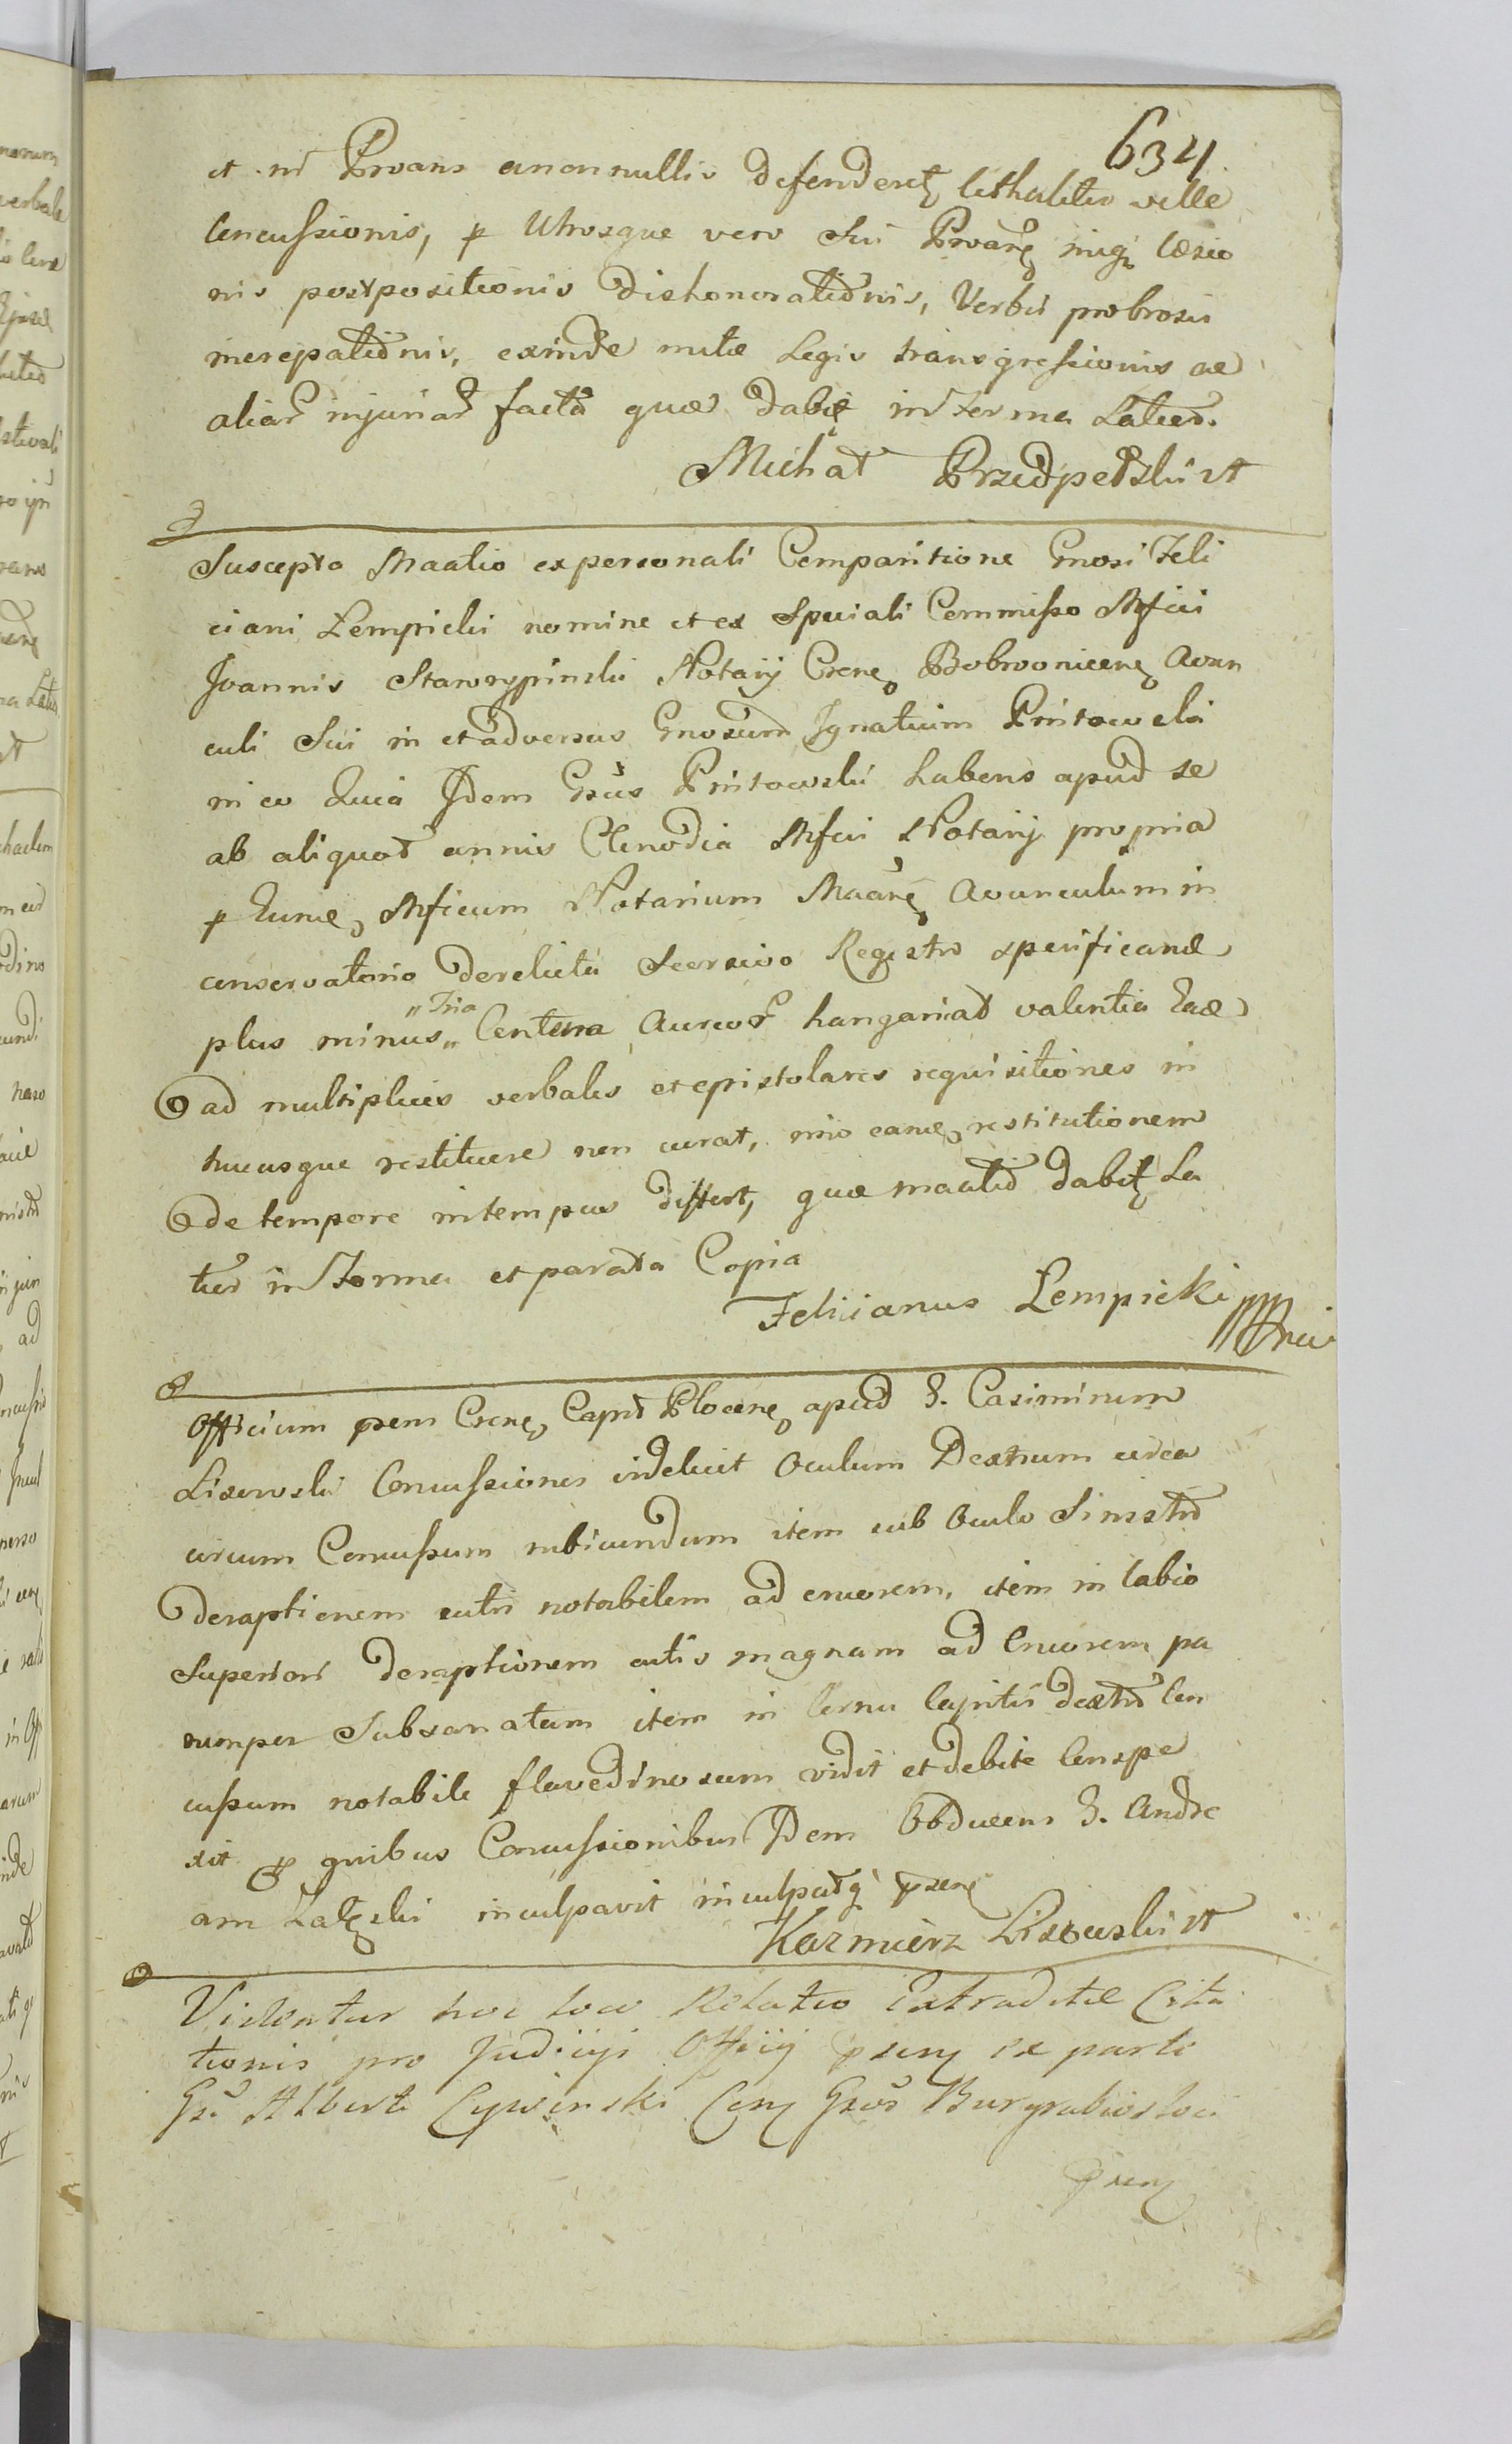 634
et ni Proans a nonnullis defenderet lethaliter velle
Concussionis, p Utrosque vero Sui Proane mig læsio
nis postpositionis dishonorationis, Verbis probrosis
increpationis, exinde mutæ Legis transgressionis ac
aliar injuriar facta quæ dabit in Forma Latior.
Michał Przedpełski
Suscepta Maatio ex personali Comparitione Gnosi Feli
ciani Lempicki nomine et ex Speciali Commisso Mfici
Joannis Stawrypinski Notarij Crene Bobrownicene Avun
culi Sui in et adversus Gnosum Ignatium Pintowski
in eo Quia Idem Gsus Pintowski habens apud se
ab aliquot annis Clenodia Mfici Notarij propria
p Eunde Mficum Notarium Maane Avunculum in
conservatorio derelicta Seorsivo Registro specificanda
plus minus „ Tria Centena Aureor hungarical valentia Ead
ad multiplices verbales et epistolares requisitiones in
hucusque restituere non curat, imo eand restitutionem
de tempore in tempus differt, quæ maatio dabit La
tior in Forma et parata Copia
Felicianus Lempicki
Officium præsens Crene Capit Plocene apud G. Casimirum
Lisewski Concussiones videlicit Oculum Dextrum circa
circum Concussum rubicundum item sub Oculo Sinistro
deraptionem cutis notabilem ad cruorem, item in labio
Superiori deraptionem cutis magnam ad Cruorem pa
rumper Subsanatam item in Cornu Capitis dextro Con
cussum notabile flavedinosum vidit et debite Conspe
xit p quibus Concussionibus Idem Obducens G. Andre
am inculpavit inculpatq præsene
Kazmierz Lisewski
Videatur hoc loco Relatio Extraditæ Cita
tionis pro Judicijs Officij præsen ex parte
Gsi Alberti Cywinski Cen Gsos Burgrabios loci
præsen